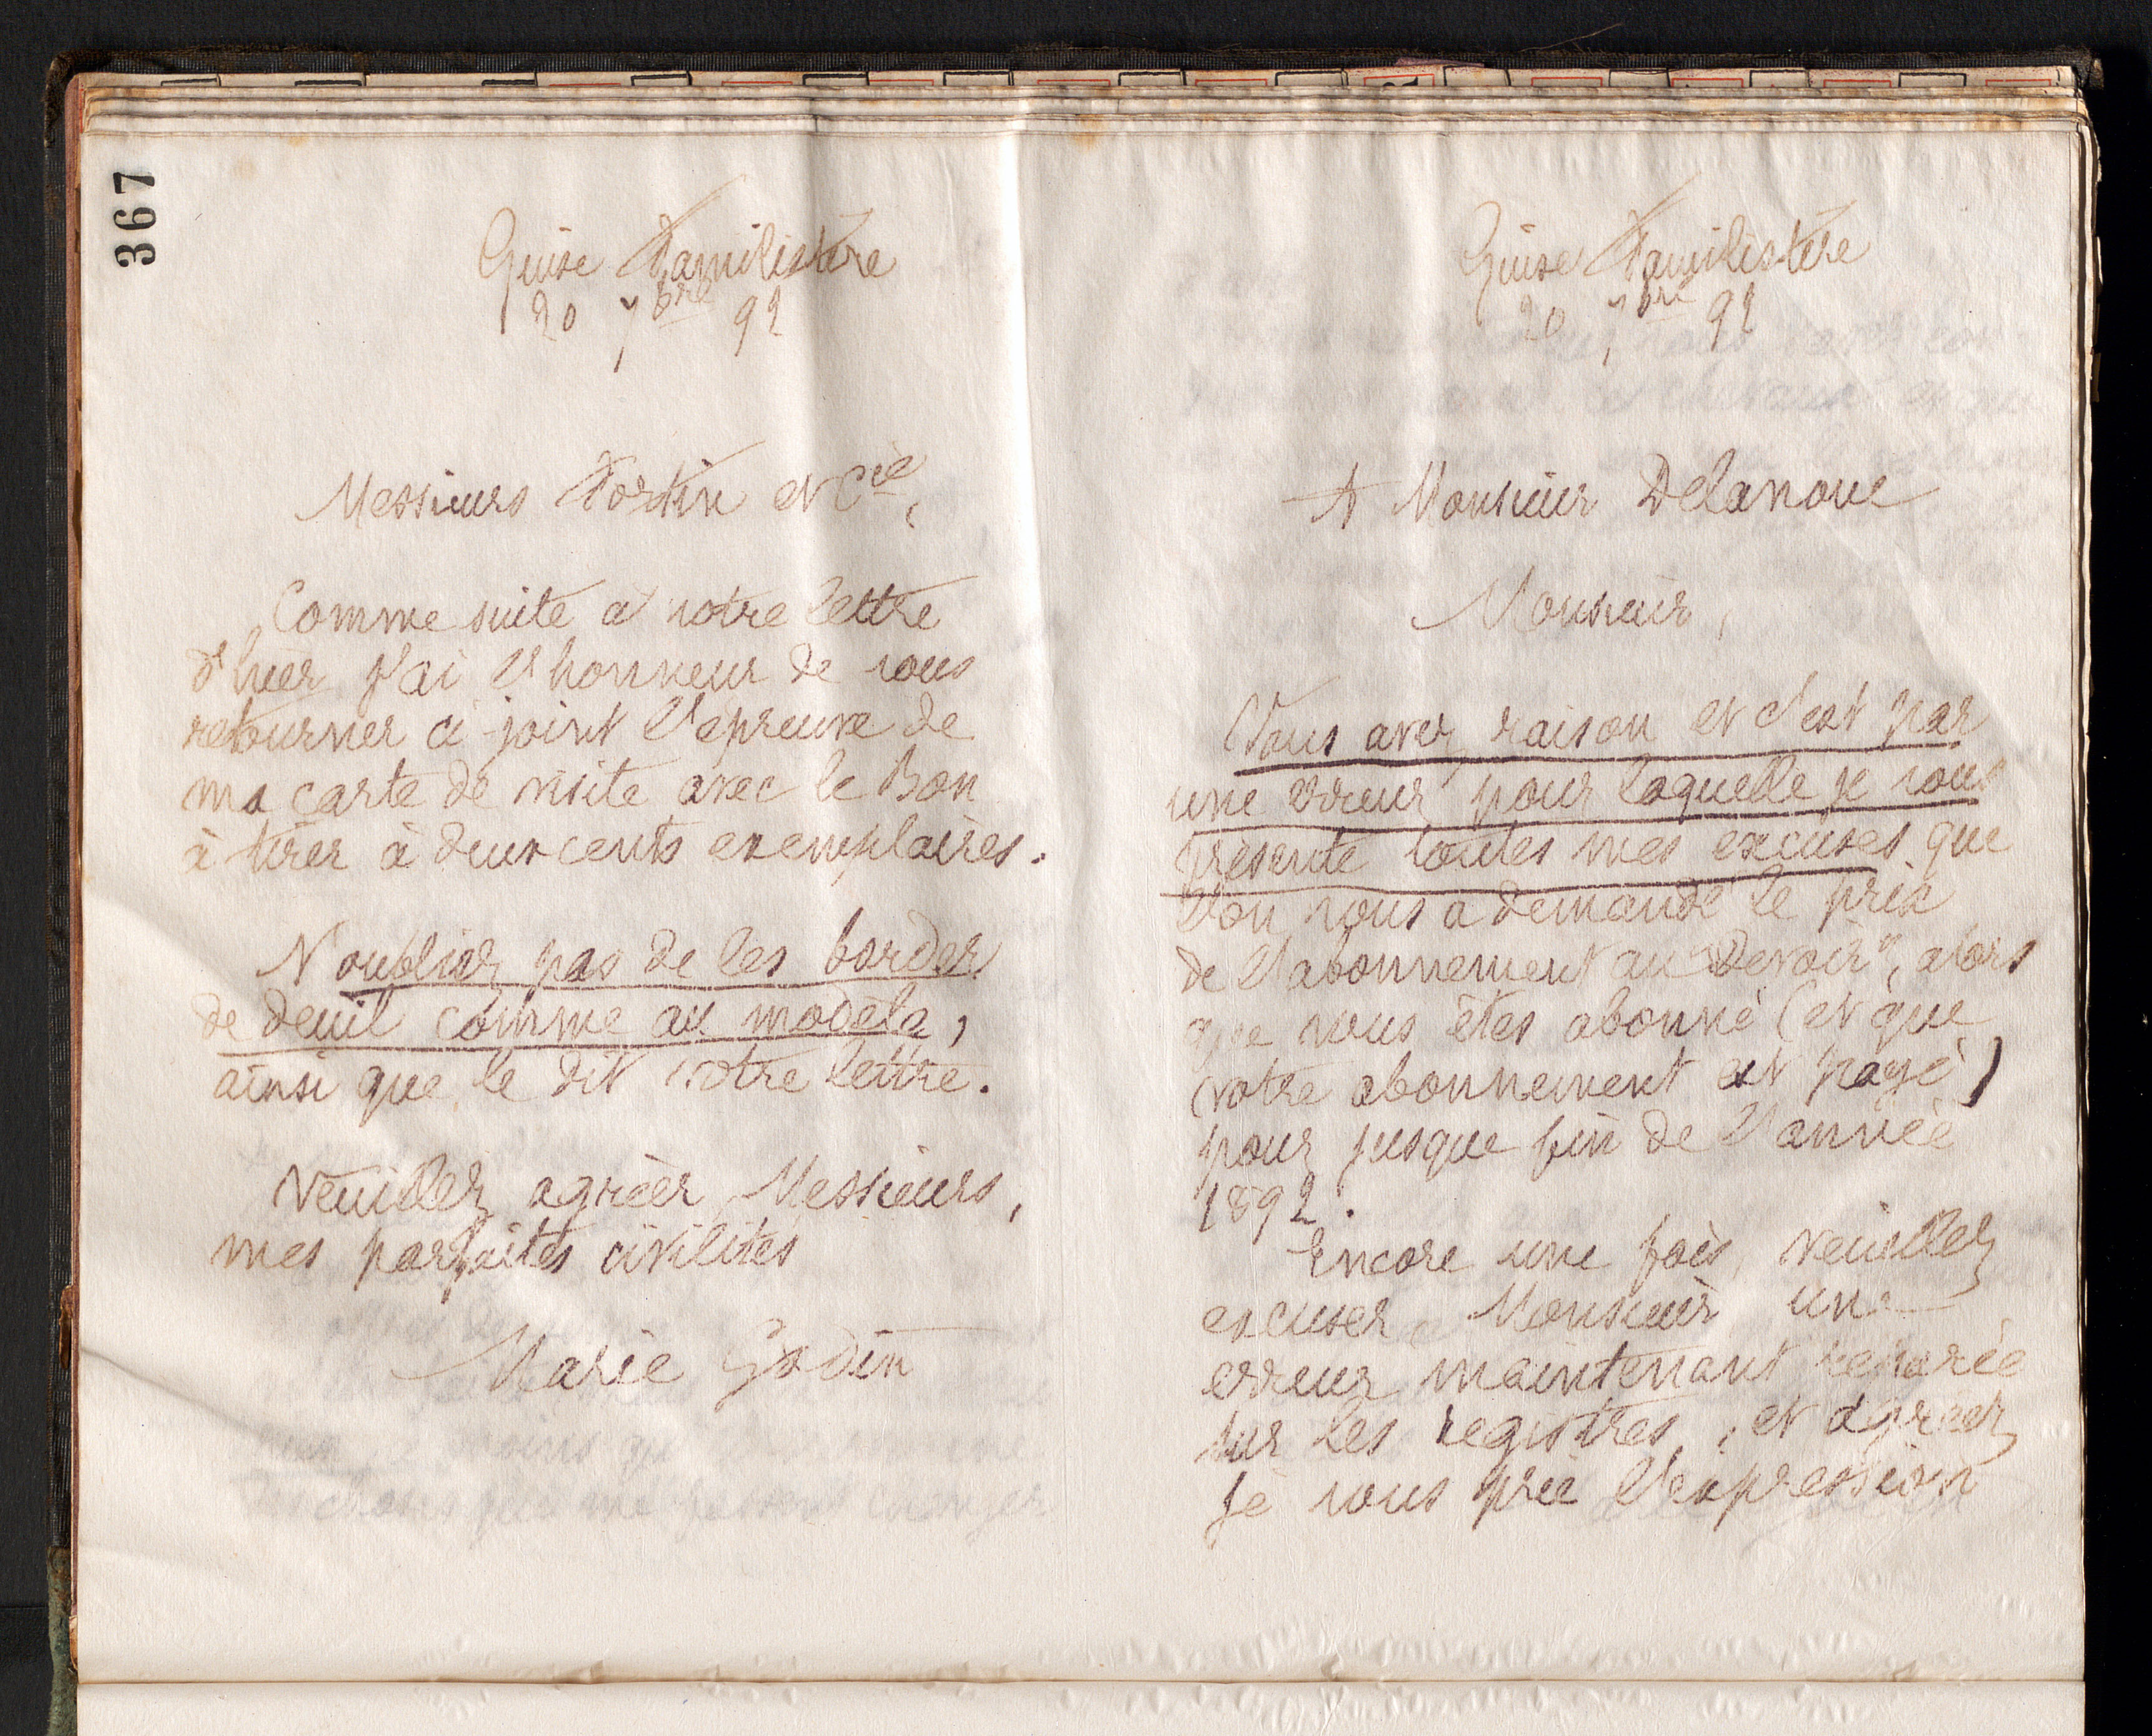 367
Guise Familistère
20 7bre 92
Messieurs Fortin et Cie,
Comme suite à votre lettre
d'hier j'ai l'honneur de vous
retourner ci-joint l'épreuve de
ma carte de visite avec le Bon
à tirer à deux cents exemplaires.
N'oubliez pas de les border
de deuil comme au modèle,
ainsi que le dit votre lettre.
Veuillez agréer, Messieurs,
mes parfaites civilités
Marie Godin
Guise Familistère
20 7bre 92
A Monsieur Delanoue
Monsieur,
Vous avez raison et c'est par
une erreur pour laquelle je vous
présente toutes mes excuses que
l'on vous a demandé le prix
de l'abonnement au "Devoir", alors
que vous êtes abonné (et que
votre abonnement est payé)
pour jusque fin de l'année
1892.
Encore une fois, veuillez
excuser, Monsieur une
erreur maintenant réparée
sur les registres, et agréez
je vous prie l'expression